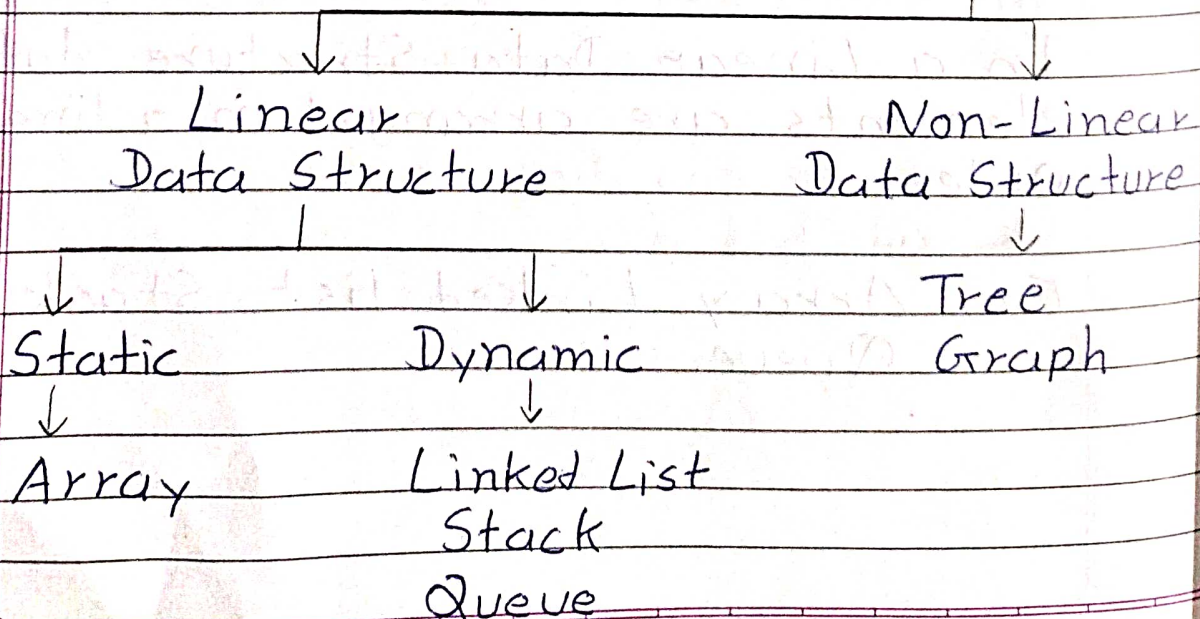 Linear
Data Structure
Non-Linear
Data Structure
Tree
Graph
Static
Array
Dynamic
Linked List
Stack
Queue